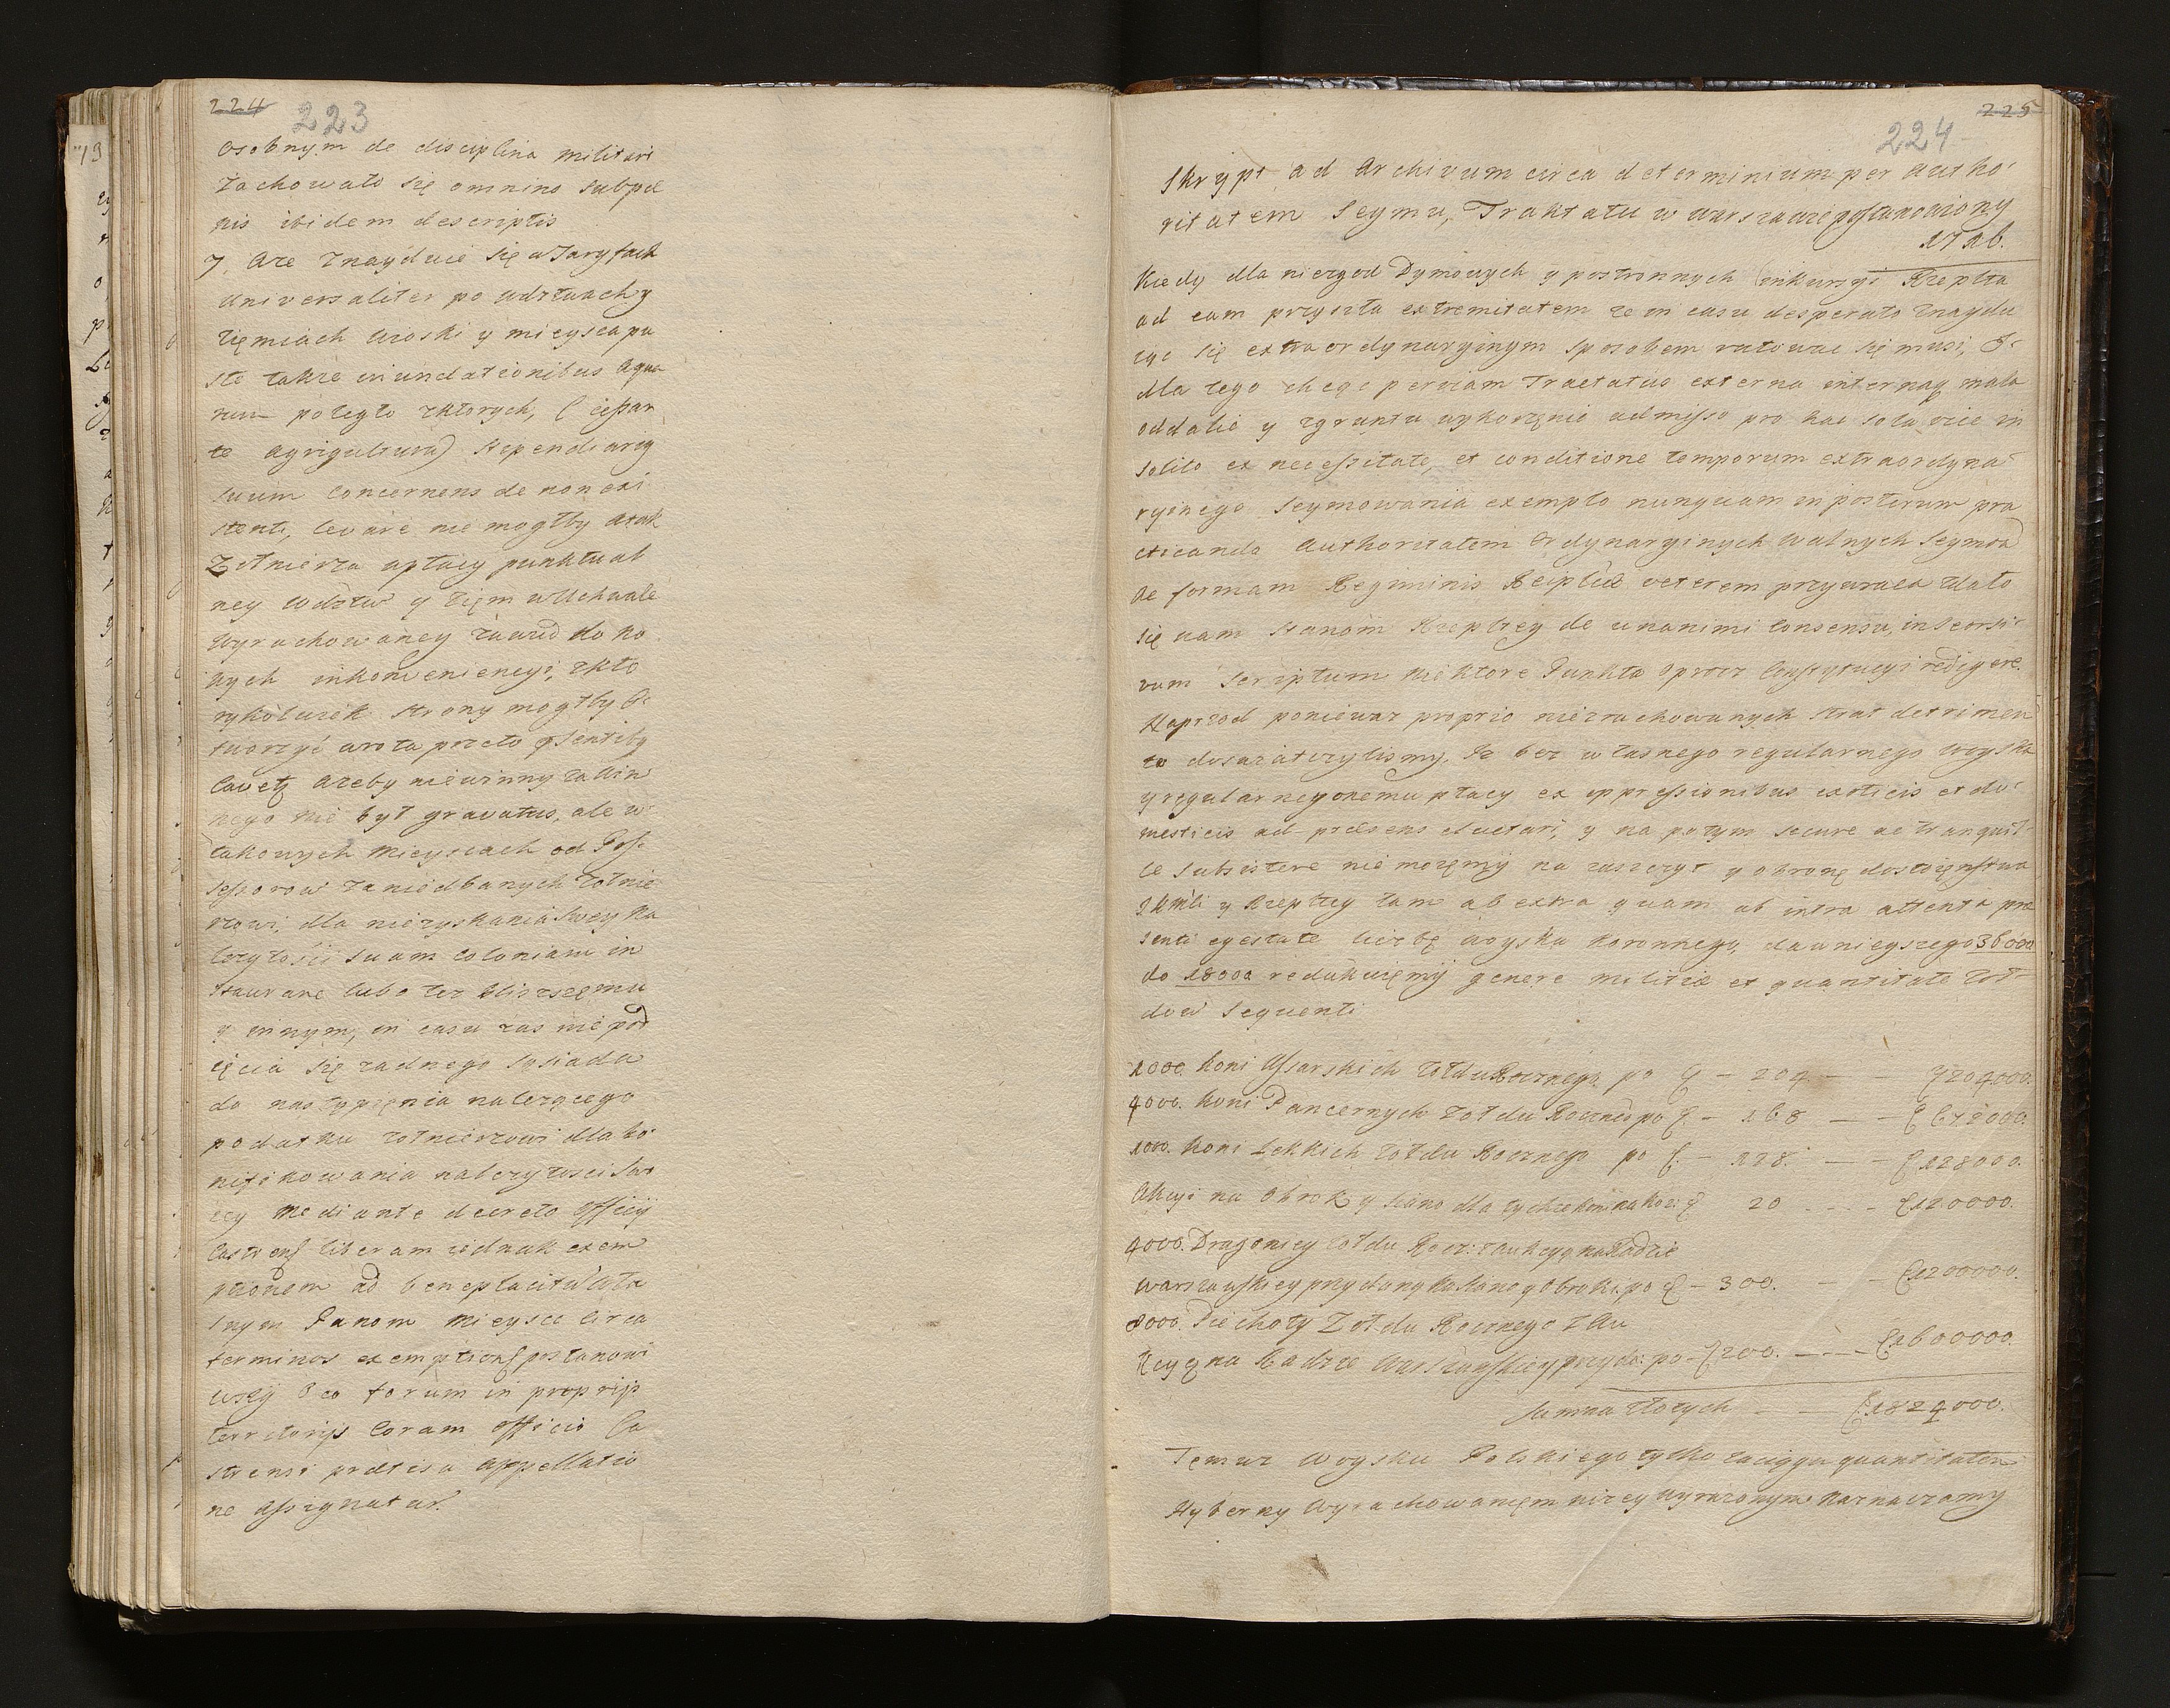 224
223
osobnym de disciplina militari
zachowało się omnino subpæ
nis ibidem descriptis
7. Aze znayduie się w Taryfach
universaliter po wdztwach y
ziemiach wioski y mieysca pu
ste także inundationibus aqua
rum potegło ktorych,
te agrigultura) stependiarig
suum concernens de non exi
stenti, levare nie mogłby a tak
Zołnierza aptacy punktual
ney wdztw y ziem w Uchwale
wyrachowaney zawod do ko
nych inkonveniencyi, z kto
rykolwiek strony mogłby o
tworzyć wrota przeto
cavetz azeby niewinny za win
nego nie był gravatus, ale w
takowych mieyscach od Pos
sessorow zaniedbanych zołnie
rzowi, dla niezyskania swey na
lezytości suam coloniam in
staurare lubo tez bliszszemu
y innym, in casu zas nie pod
ięcia się zadnego sąsiada
do nastąpienia nalezącego
podatku zołnierzowi dla bo
nifikowania nalezytosci swo
iey mediante decreto officij
Castrens liberam iednak exem
ptionem ad beneplacitu wła
snym Panom mieysce circa
terminos exemptions postanowi
wszy o co forum in proprijs
territorijs coram officio Ca
strensi præcisa appellatio
ne assignatur.
225
224
Skrypt ad Archivum circa determinium per autho
ritatem Seymu, Traktatu w Warszawie postanowiony
1716.
Kiedy dla niezgod Dymowych y postronnych inkursyi Rzeplta
ad eam przyszła extremitatem ze in casu desperato znaydu
iąc się extraordynaryinym sposobem ratowac się musi,
dla tego chcąc per viam Tractatus externa internaq mala
oddalic y zgruntu wykorzenic admisso pro hac sola vice in
solito ex necessitate, et conditione temporum extraordyna
ryinego Seymowania exemplo nunquam in posterum pra
cticando Authoritatem Ordynaryinych Walnych Seymow
ac formam Regiminis Reiplicæ veterem przywraca zdało
się nam Stanom Rzepltey de unanimi consensu, in seorsi
vum Scriptum niektore Punkta oprocz Constytucyi redigere.
Naprzod poniewaz proprio niezrachowanych strat detrimen
to doswiatczylismy, Ze bez własnego regularnego woyska
y regularney onemu płacy ex oppressionibus exoticis et do
mesticis ad præsens eluctari, y na potym secure ac tranquil
le subsistere nie mozemy na zaszczyt y obronę dostoięnstwa
JKMci y Rzepltey tam ab extra quam ab intra attenta præ
senti egestate liczbę woyska koronnego, dawnieyszego 36000
do 18000 redukuięmy genere militiæ et quantitate zoł
dow sequenti
1000. koni Usarskich zołdu Rocznego po ƶ — 204 — ƶ 204000.
4000. koni Pancernych zołdu Roczneo po ƶ — 168 — ƶ 672000.
1000. koni Lekkich zołdu Rocznego po ƶ — 128. — ƶ 128000.
Akcyi na Obrok y siano dla tychze koni na koz: ƶ 20 — ƶ 120000.
4000. Dragoniey zołdu Rocz: z aukcyą na Radzie
Warszawskiey przydaną na siano y obroki. po ƶ — 300. — ƶ 1200000.
8000. Piechoty Zołdu Rocznego z Au
kcyą na Radzie Warszawskiey przyda: po ƶ 200. — ƶ 1600000.
Summa złotych — ƶ 1824000.
Temuz Woysku Polskiego tylko zaciągu quantitatem
Hyberny wyrachowaniem nizey wyrazonym naznaczamy